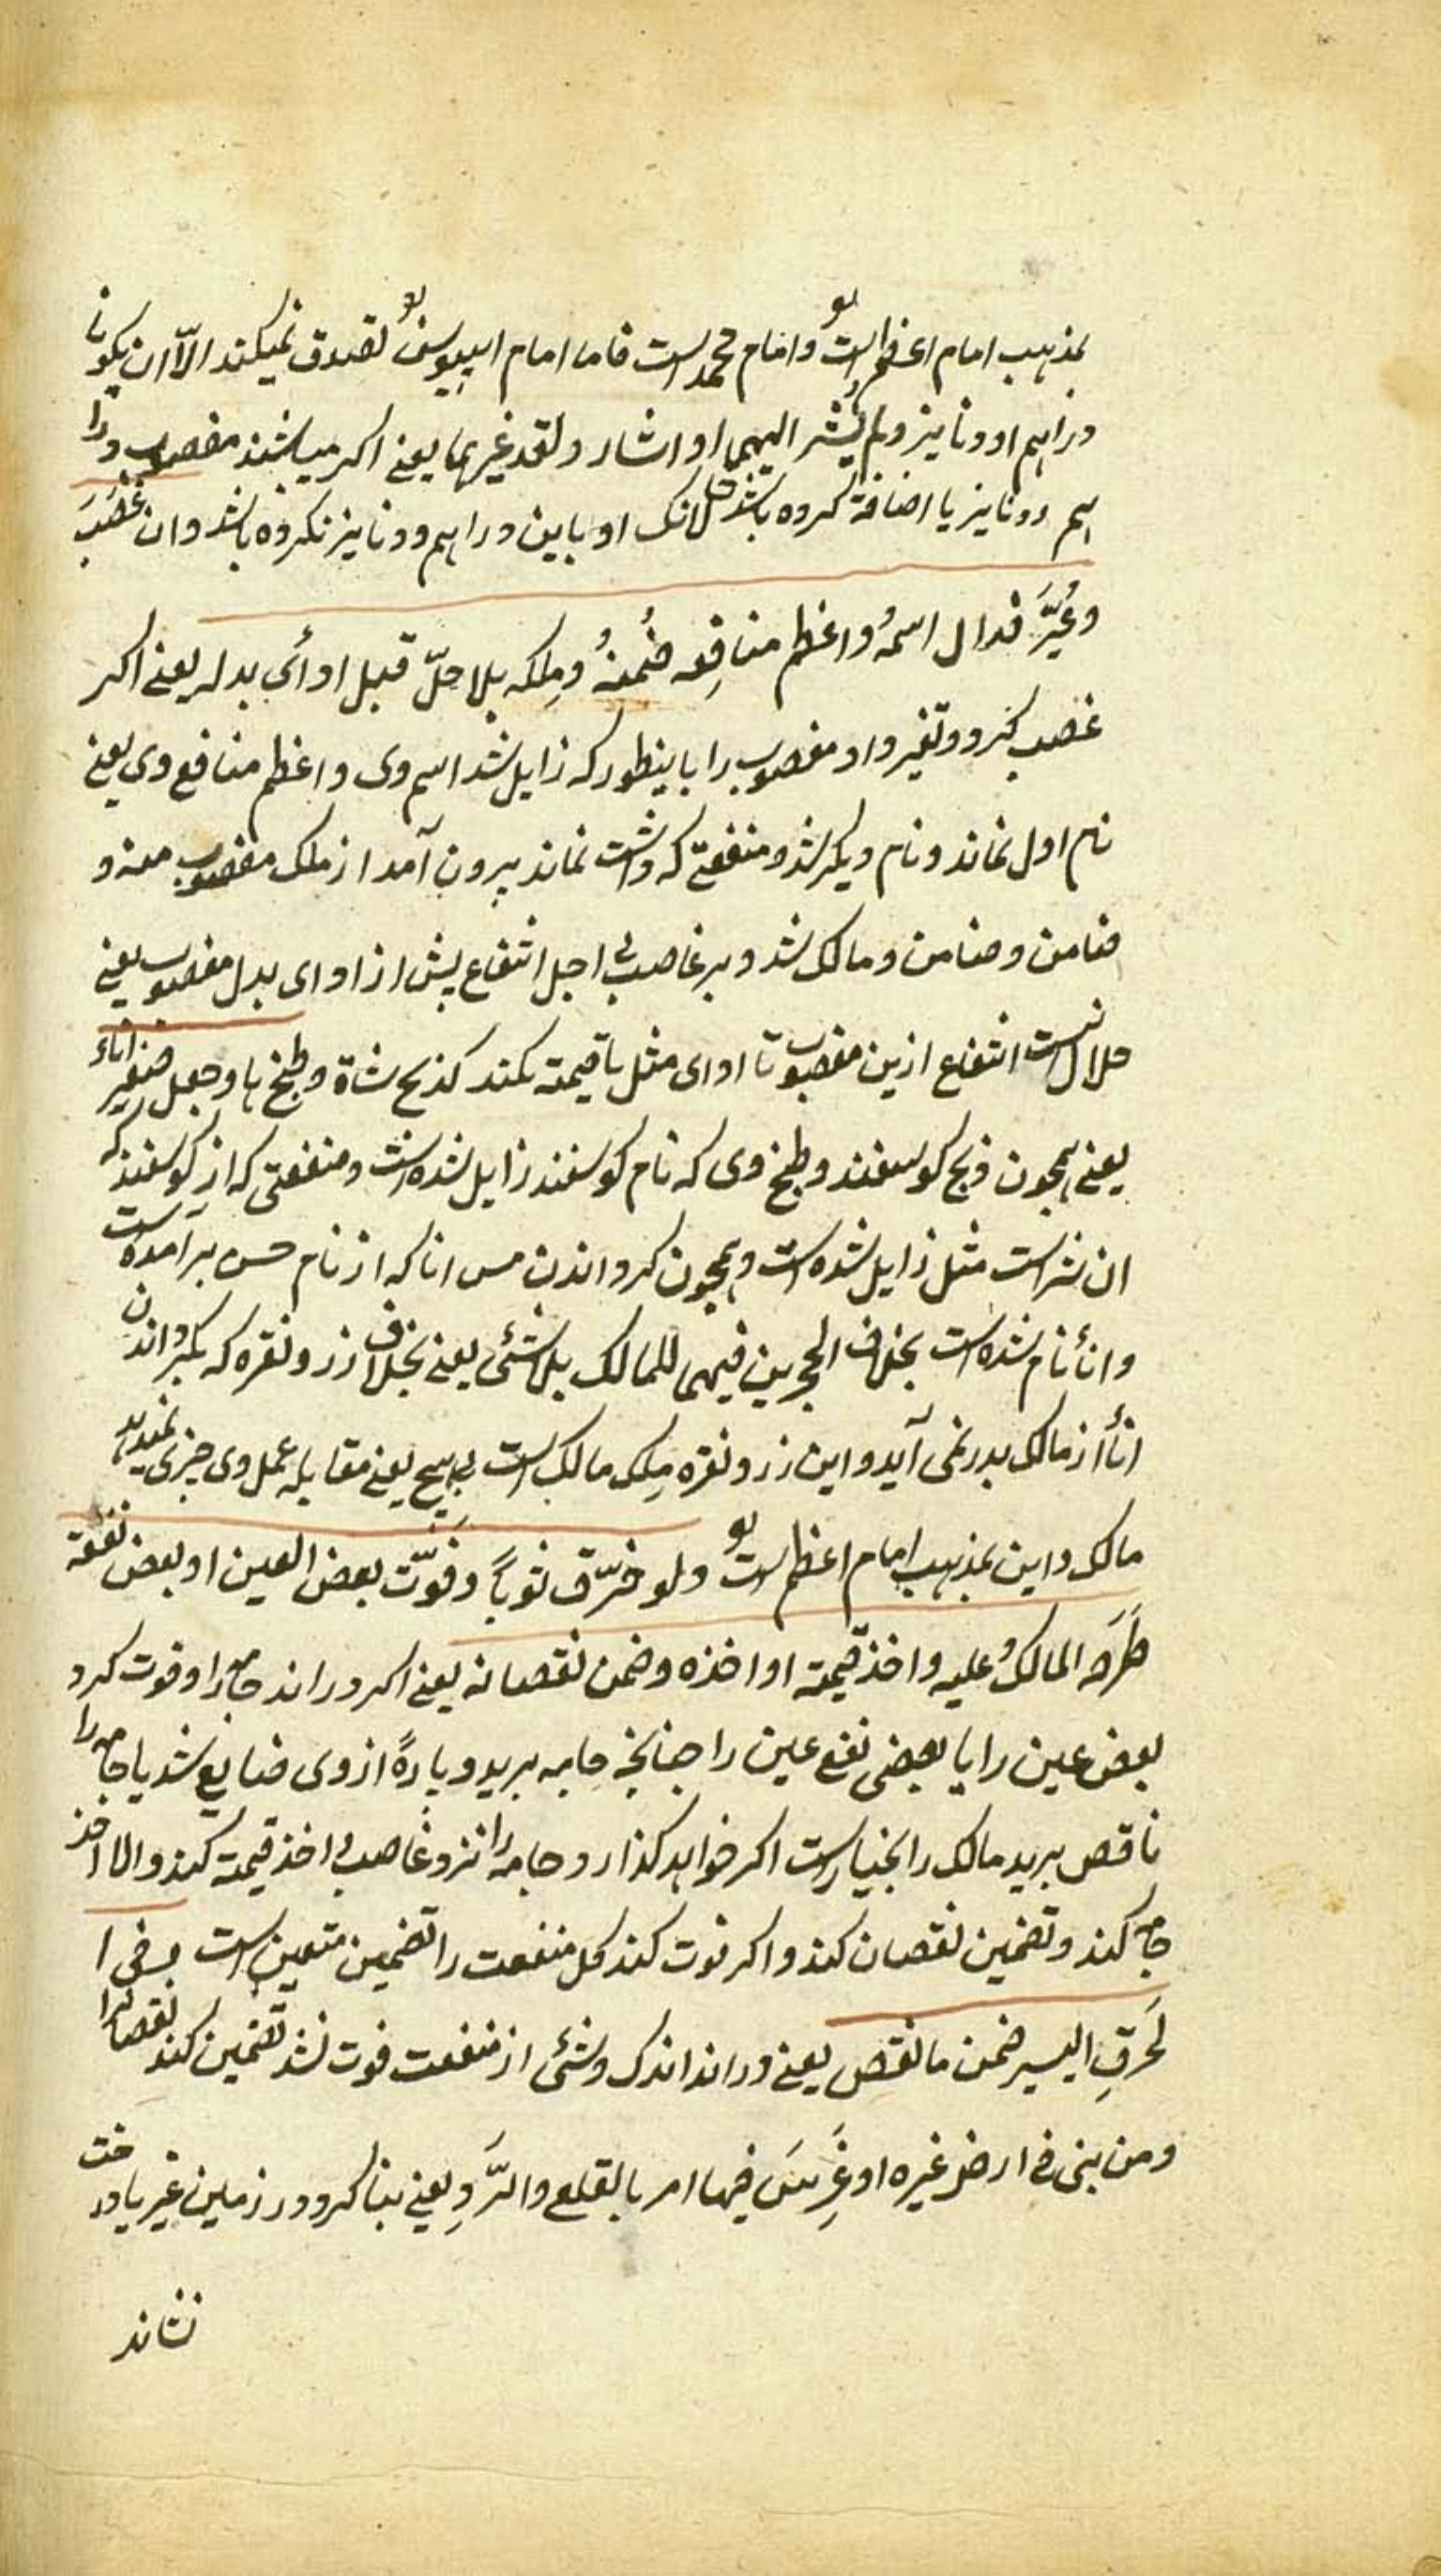 بمذهب امام اعظم است و امام محمد است فاما امام ابی‌یوسف تصدق نمیکند الّا ان یکونا
دراهم او دنانیز ولم یُشر الیهما او اشار ونقد غیرهما یعنی اکر میباشند مغصوب درا
هم ودنانیز یا اضافة کرده باشد حالانک او باین دراهم ودنانیز نکرده باشد وان غصَبَ
وغُیّرَ فزال اسمهُ واعظم منافِعِه ضُمنهُ ومِلکه بلا حلّ قبل ادأی بدله یعنی اکر
غصب کند وتغیر داد مغصوب را باینطور که زایل شد اسم وی واعظم منافع وی یعنی
نام اول نماند ونام دیکر شد ومنفعتی که داشت نماند بیرون آمد از ملک مغصوب منه و
ضامن وضامن ومالک شد وبر غاصب بی اجل انتفاع پیش از ادای بدل مغصوب یعنی
حلال نیست انتفاع ازین مغصوب تا ادای مثل یا قیمته نکند کذبح شاة وطبخها وجعل صفر اناءً
یعنی همجون ذبح کوسفند وطبخ وی که نام کوسفند زایل شده است ومنفعتی که از کوسفند که
ان نتراست مثل زایل شده است وهمجون کرداندن مس انا که از نام مس برآمده است
وانأ نام شده است بخلاف الحجرین فیهما للمالک بلا شئی یعنی بخلاف زر ونقره که بکرداندن
انأ از مالک بدر نمی آید واین زر ونقره مِلک مالک است بی هیج یعنی مقابله عمل وی جیزی نمیدهد
مالک واین بمذهب امام اعظم است ولو خرّق ثوباً وفَوّت بعض العین او بعض نفعه
طَرَحه المالکُ علیه واخذ قیمته او اخذه وضمن نقصانه یعنی اکر دراند جامه را وفوت کرد
بعض عین را یا بعضی نفع عین را جنانجه جامه برید وپارهً ازوی ضایع شد یا جامه را
ناقص برید مالک را اختیار است اکر خواهد کذارد جامه را نزد غاصب اخذ قیمت کند والا اخذ
جامه کند وتضمین نقصان کند واکر فوت کند کل منفعت را تضمین متعین است وفی ا
لخَرقِ الیسیر ضمن ما نقص یعنی دراند اندک وشئی از منفعت فوت نشد تضمین کند نقصانرا
ومن بنی فی ارض غیره او غَرِسَ فیها امر بالقلع والرَّدِ یعنی بنا کرد در زمین غیر یا درخت
نشاند